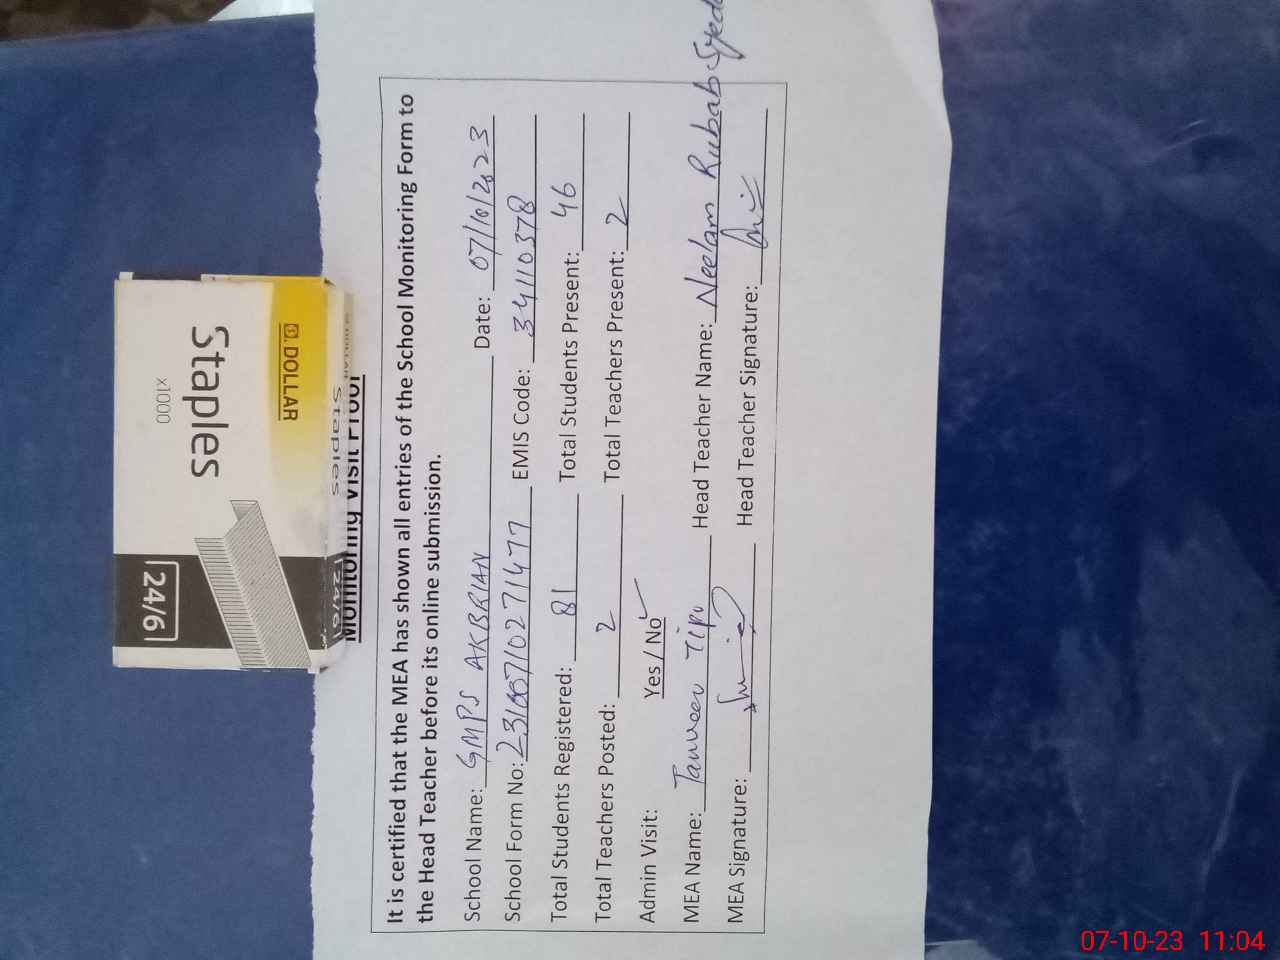 Staples
x1000
DOLLAR
24/6
Staples
24/6
Monitoring Visit Proof
It is certified that the MEA has shown all entries of the School Monitoring Form to
the Head Teacher before its online submission.
School Name: GMPS AKBRIAN Date: 07/10/2023
School Form No: EMIS Code: 34110378
Total Students Registered: 81 Total Students Present: 46
Total Teachers Posted: 2 Total Teachers Present: 2
Admin Visit: Yes / No ✓
MEA Name: Tanveer Tipu Head Teacher Name: Neelam Rubab Syeda
MEA Signature: Head Teacher Signature:
07-10-23 11:04